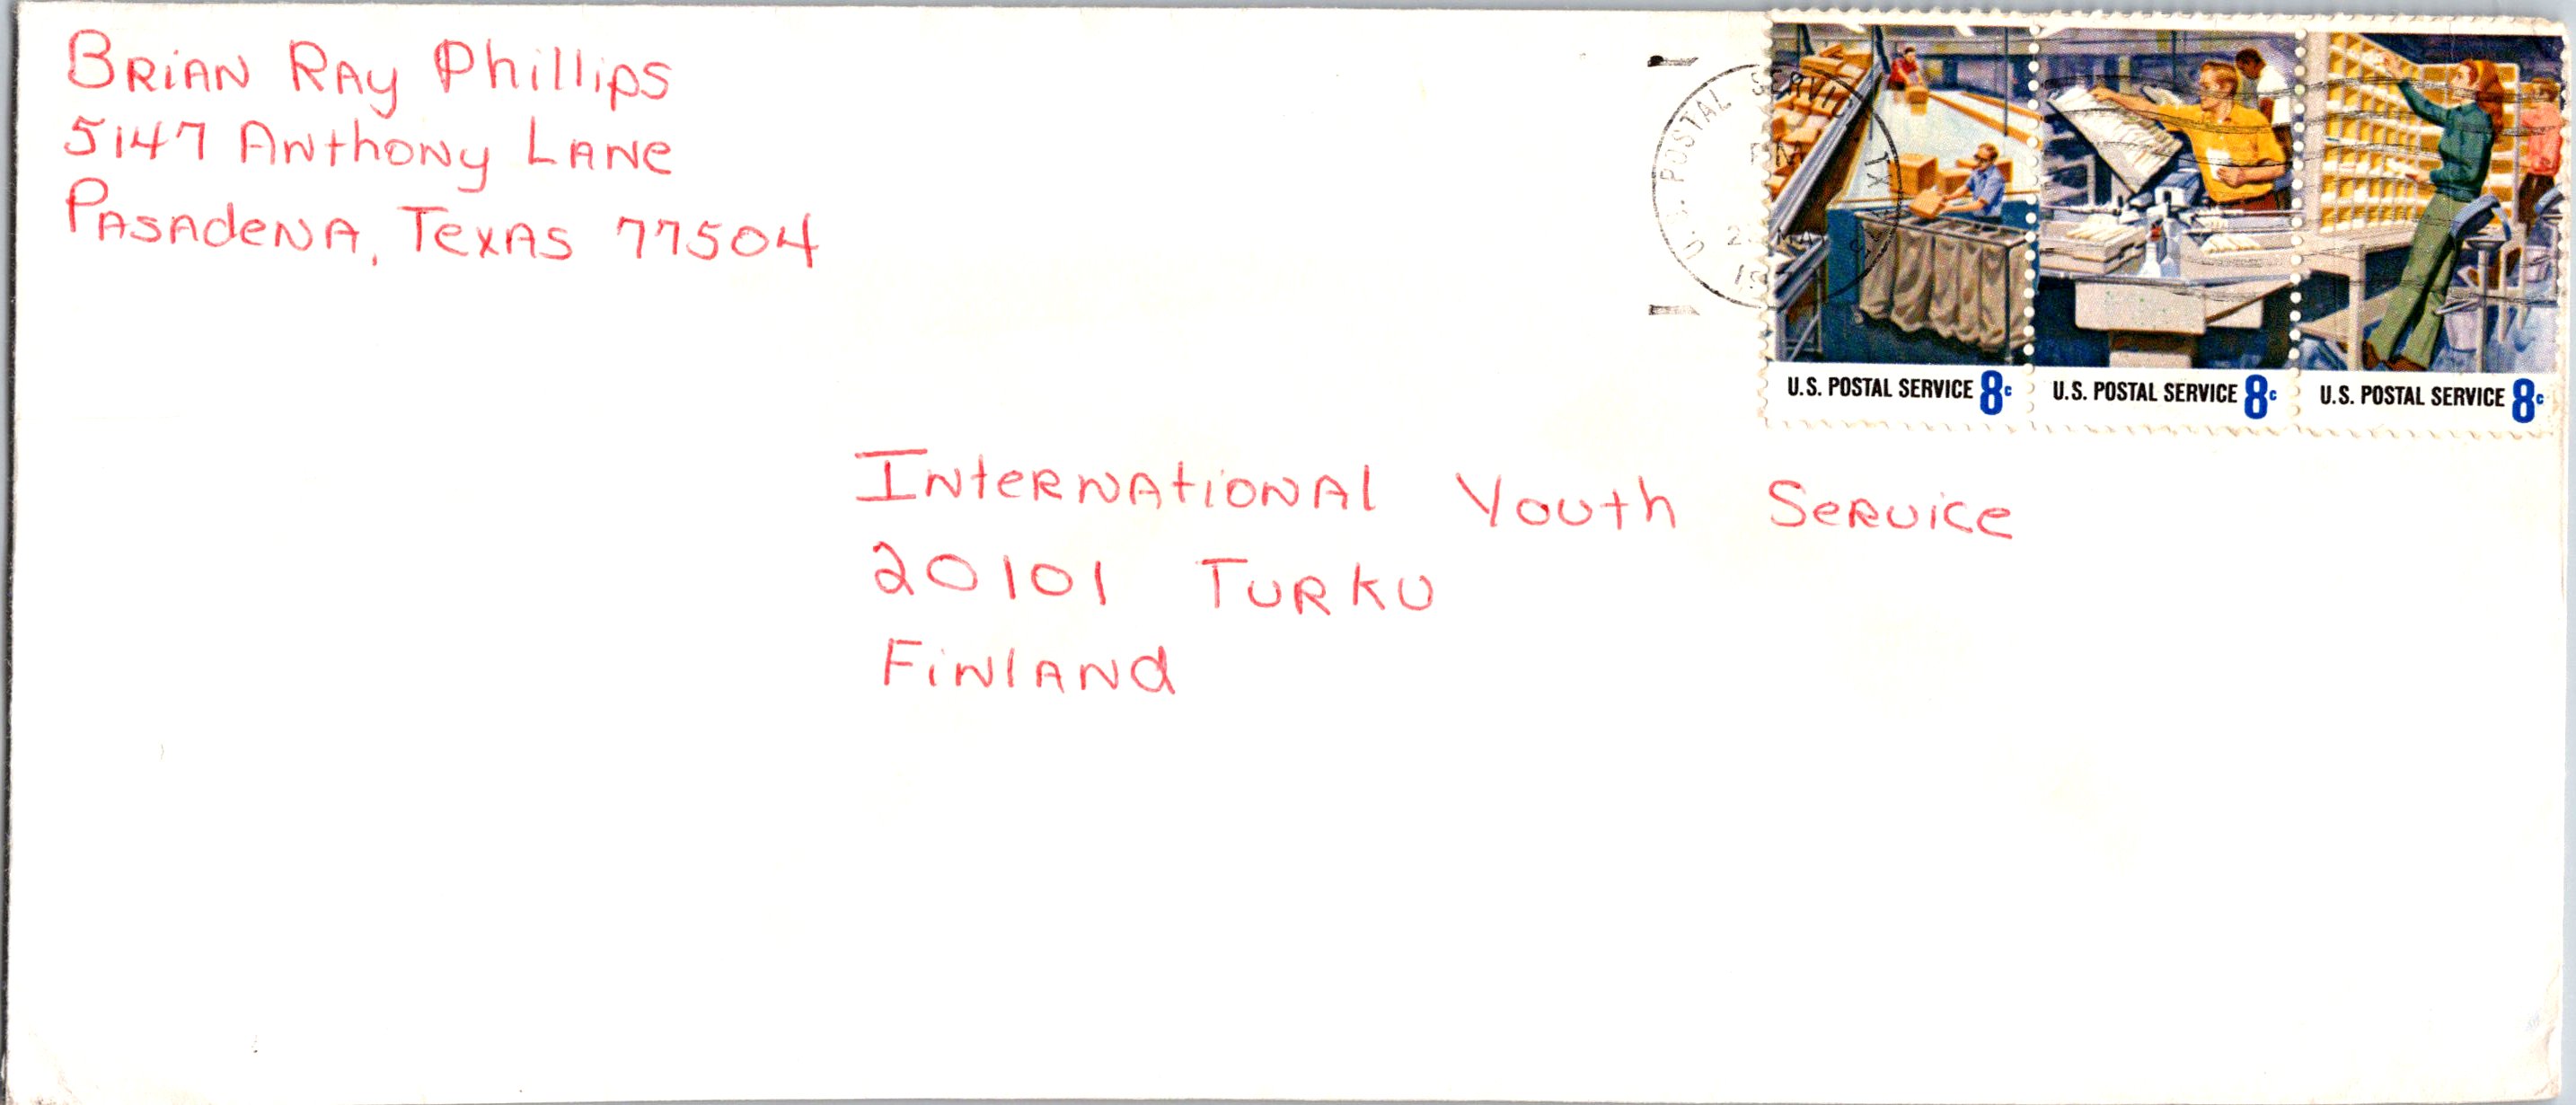 Brian Ray Phillips
5147 Anthony Lane
Pasadena, Texas 77504
U.S. POSTAL SERVICE TX
PM
U.S. POSTAL SERVICE 8c
U.S. POSTAL SERVICE 8c
U.S. POSTAL SERVICE 8c
International Youth Service
20101 Turku
Finland